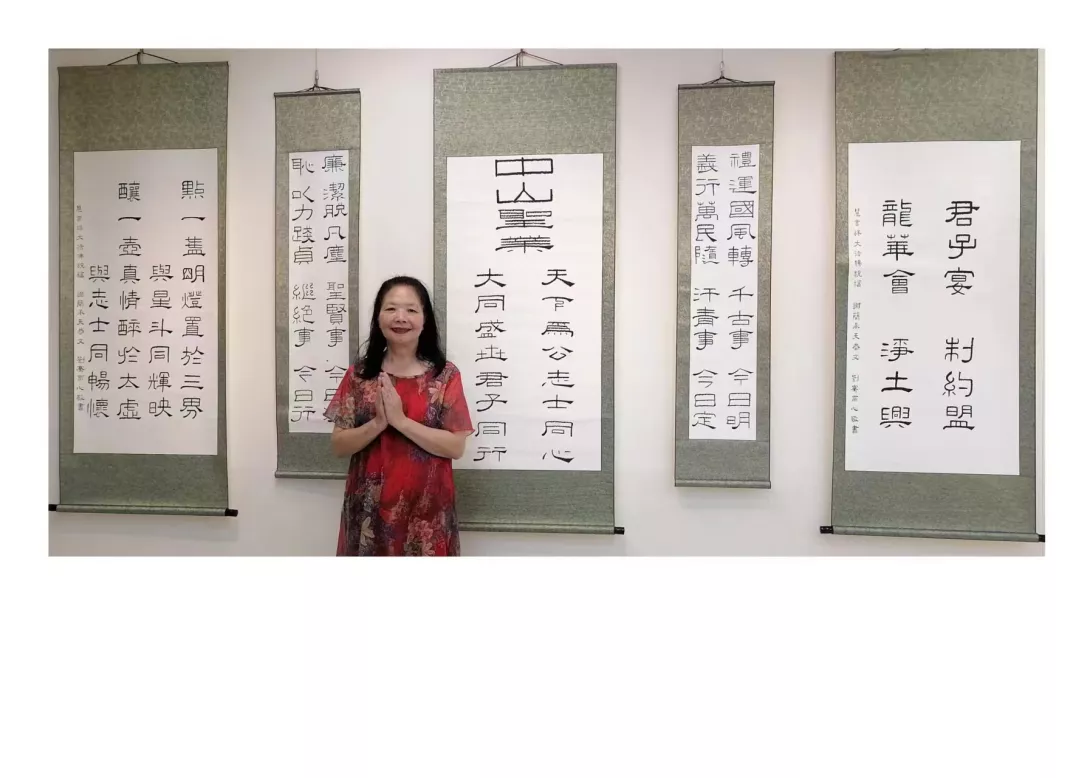 君子宴 制約盟
龍華會 淨土興
禮運國風轉 千古事 今日明
義行萬民隨 汗青事 今日定
中山聖業
天下爲公志士同心
大同盛世君子同行
廉潔脫凡塵 聖賢事 今日
恥以力踐貞 繼絕事 今日行
點一盞明燈置於三界
與星斗同輝映
釀一壺真情醉於太虛
與志士同暢懷